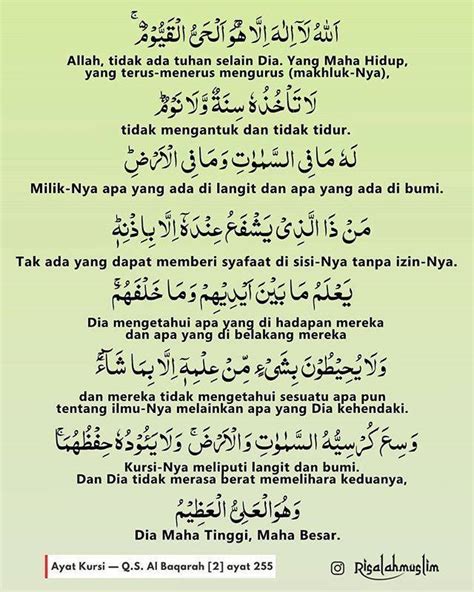 اَللّٰهُ لَآ اِلٰهَ اِلَّا هُوَ الْحَيُّ الْقَيُّوْمُ ۚ
Allah, tidak ada tuhan selain Dia. Yang Maha Hidup,
yang terus-menerus mengurus (makhluk-Nya),
لَا تَأْخُذُهٗ سِنَةٌ وَّلَا نَوْمٌ ۗ
tidak mengantuk dan tidak tidur.
لَهٗ مَا فِى السَّمٰوٰتِ وَمَا فِى الْاَرْضِ ۗ
Milik-Nya apa yang ada di langit dan apa yang ada di bumi.
مَنْ ذَا الَّذِيْ يَشْفَعُ عِنْدَهٗٓ اِلَّا بِاِذْنِهٖ ۗ
Tak ada yang dapat memberi syafaat di sisi-Nya tanpa izin-Nya.
يَعْلَمُ مَا بَيْنَ اَيْدِيْهِمْ وَمَا خَلْفَهُمْ ۚ
Dia mengetahui apa yang di hadapan mereka
dan apa yang di belakang mereka
وَلَا يُحِيْطُوْنَ بِشَيْءٍ مِّنْ عِلْمِهٖٓ اِلَّا بِمَا شَاۤءَ ۚ
dan mereka tidak mengetahui sesuatu apa pun
tentang ilmu-Nya melainkan apa yang Dia kehendaki.
وَسِعَ كُرْسِيُّهُ السَّمٰوٰتِ وَالْاَرْضَ ۚ وَلَا يَـُٔوْدُهٗ حِفْظُهُمَا ۚ
Kursi-Nya meliputi langit dan bumi.
Dan Dia tidak merasa berat memelihara keduanya,
وَهُوَ الْعَلِيُّ الْعَظِيْمُ
Dia Maha Tinggi, Maha Besar.
Ayat Kursi — Q.S. Al Baqarah [2] ayat 255
Risalahmuslim